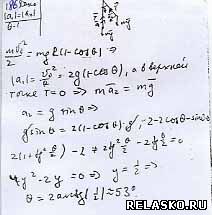 186 Дано
|a₁|=|a₂|
θ-?
T
mg
mg
mv₀²/2 = mgl(1-cosθ) ⇒
|a₁| = v₀²/l = 2g(1-cosθ), а в верхней
точке T=0 ⇒ ma₂ = mg
a₂ = g sinθ ⇒
g sinθ = 2(1-cosθ)·g, 2-2cosθ-sinθ
2(1+tg²θ/2) - 2 + 2tg²θ/2 - 2tgθ/2 = 0
4y² - 2y = 0 ⇒ y = 1/2 ⇒
θ = 2arctg(1/2) ≈ 53°
RELASKO.RU